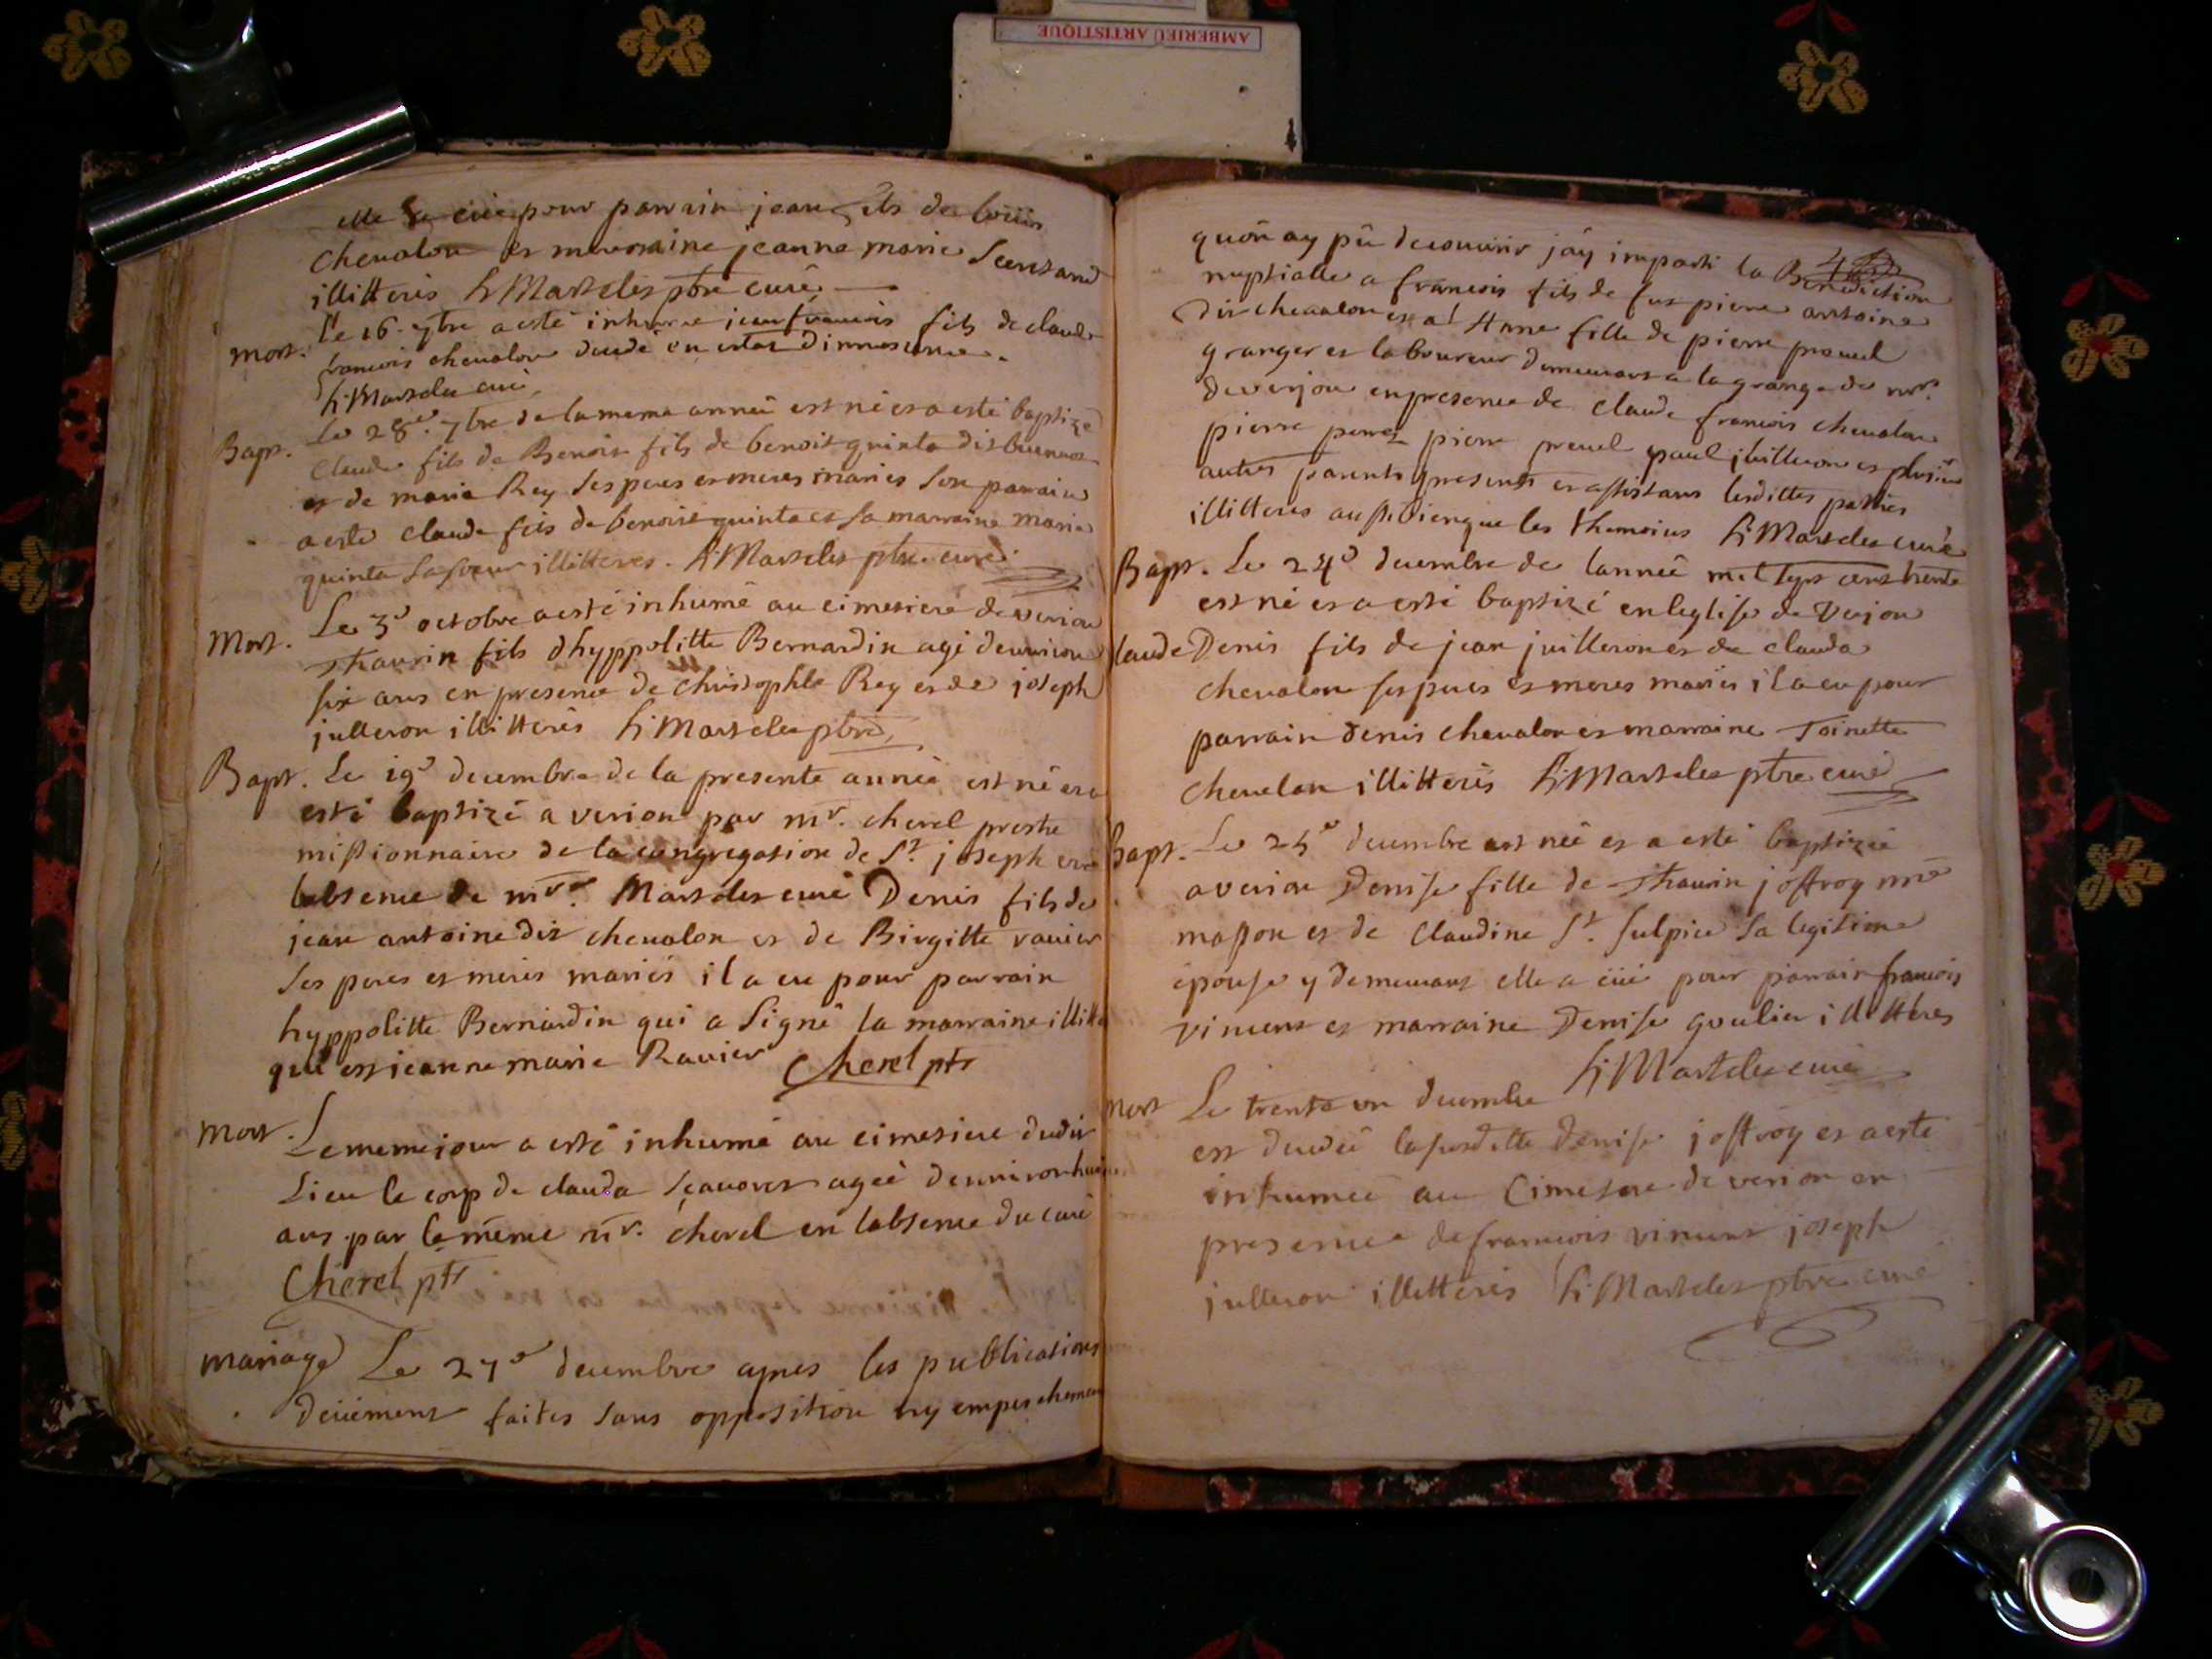 AMBERIEU ARTISTIQUE
elle a eüe pour parrain jean fils de loüis
chevalon et marraine jeanne marie
illitterés h: Marteles ptre curé
Mort. Le 16. 7bre a esté inhumé jean francois fils de claude
francois chevalon decedé en estat dinnocence.
h: Marteles curé
Bapt. Le 28e. 7bre de la meme année est né et a esté baptizé
claude fils de Benoit fils de benoit quinta dit
et de marie Rey ses peres et meres mariés son parrain
a esté claude fils de benoit quinta et sa marraine marie
quinta sa soeur illitteres. h: Marteles ptre. curé
Mort. Le 3e octobre a esté inhumé au cimetiere de verion
Thaurin fils dhyppolitte Bernardin agé denviron
six ans en presence de christophle Rey et de joseph
julleron illitterés h: Marteles ptre
Bapt. Le 19e decembre de la presente année est né et a
esté baptizé a verion par mr. cherel prestre
missionnaire de la congregation de St. joseph en
labsence de mr. Marteles curé Denis fils de
jean antoine dit chevalon et de Birgitte ravier
ses peres et meres mariés il a eu pour parrain
hyppolitte Bernardin qui a signé la marraine illitte
qui est jeanne marie Ravier Cherel ptr
Mort. Le meme jour a esté inhumé au cimetiere dudit
Lieu le corp de clauda agée denviron huit
ans par le méme mr. cherel en labsence du curé
Cherel ptr
mariage Le 27e decembre apres les publications
deüement faites sans opposition ny empeschemen
quon ay pû decouvrir jáy imparti la Benediction
nuptialle a francois fils de fut pierre antoine
Dit chevalon et a Anne fille de pierre preuel
granger et laboureur demeurant a la grange de mr.
deverjon en presence de claude francois chevalon
pierre pierre preuel paul juilleron et plusieurs
autres parents presents et assistans lesdittes parties
illitteres aussi bien que les themoins h: Marteles curé
Bapt. Le 24e decembre de lannée mil sept cent trente
est né et a esté baptizé en leglise de Verjon
laude Denis fils de jean juilleron et de clauda
chevalon ses peres et meres mariés il a eu pour
parrain denis chevalon et marraine Toinette
chevalon illitterés h: Marteles ptre curé
Bapt. Le 25e decembre est neé et a esté baptizée
a verion Denise fille de Thaurin joffroy me
masson et de Claudine St. sulpice sa legitime
épouse y demeurant elle a eüe pour parrain francois
vincent et marraine Denise goulier illitteres
h: Marteles curé
mort Le trente un decembre
est decedée lasusditte denise joffroy et a esté
inhumeé au Cimetiere de verion en
presence de francois vincent joseph
julleron illitterés h: Marteles ptre curé